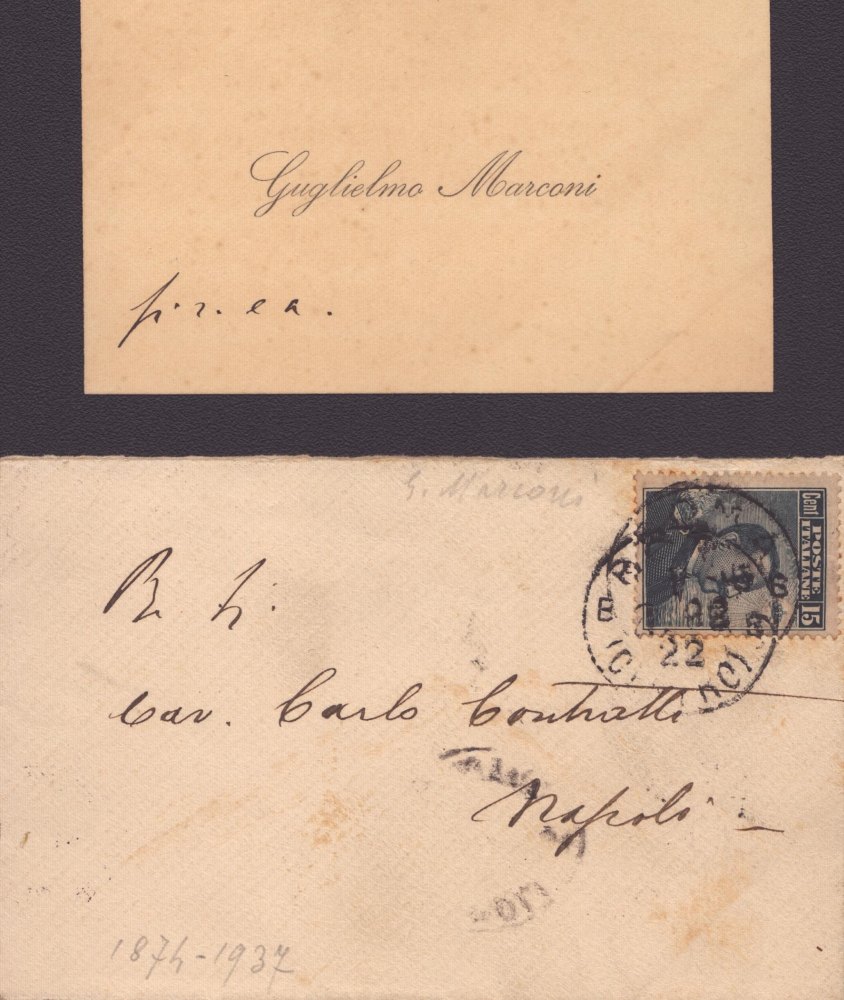 Guglielmo Marconi
p. r. e a.
G. Marconi
Cent POSTE ITALIANE 15
22
Cav. Carlo Contratti
Napoli
1874-1937